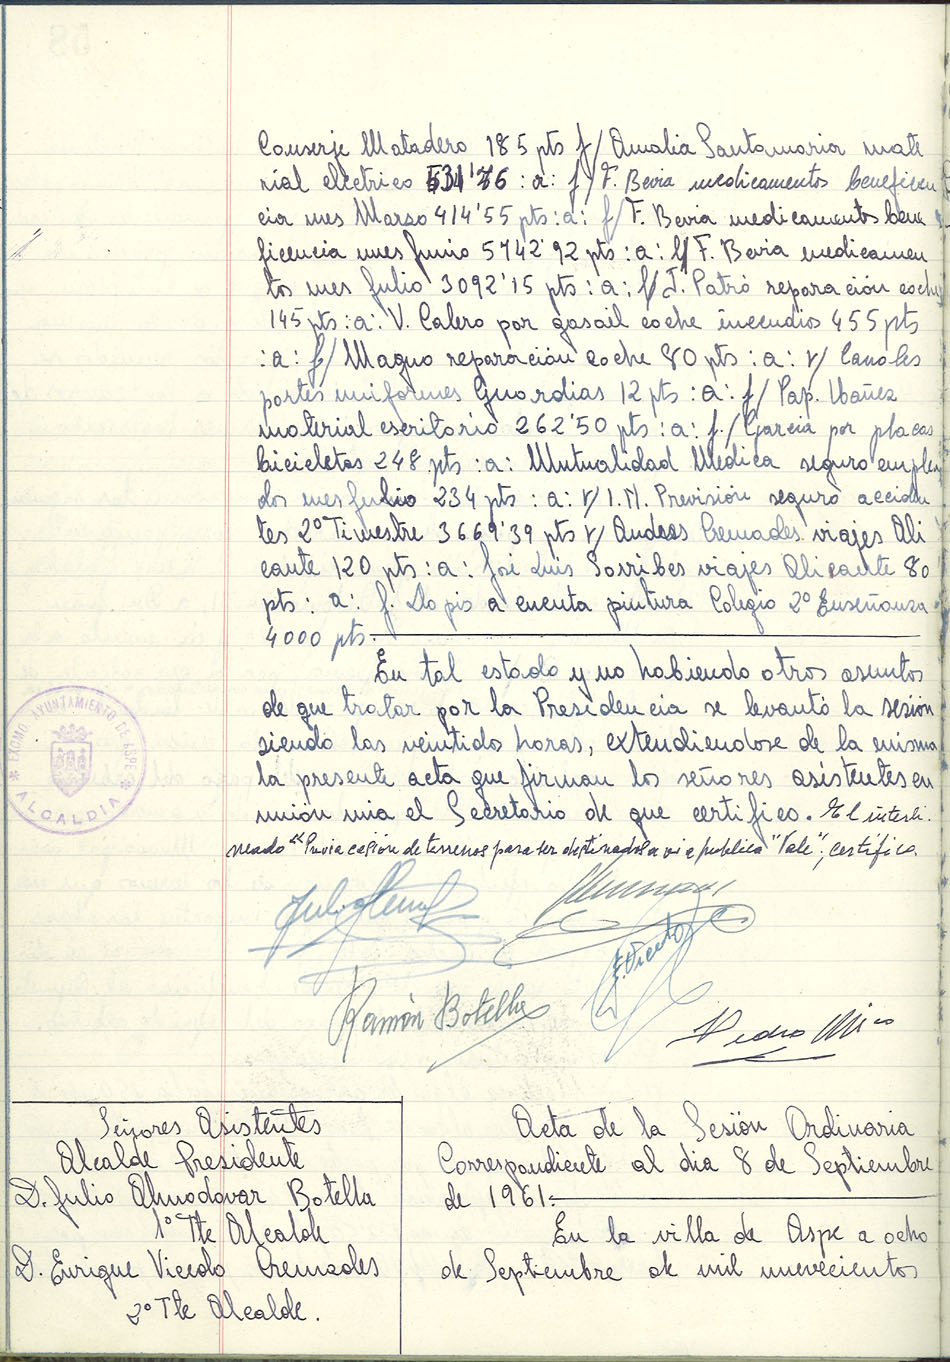 Conserje Matadero 185 pts f/ Amalia Santamaria mate
rial electrico 531'76 :a: f/ F. Bevia medicamentos beneficen
cia mes Marzo 414'55 pts :a: f/ F. Bevia medicamentos bene
ficencia mes Junio 5742'92 pts :a: f/ F. Bevia medicamen
tos mes Julio 3092'15 pts :a: f/ J. Patró reparación coche
145 pts :a: V. Calero por gasoil coche incendios 455 pts
:a: f/ Magno reparación coche 80 pts :a: r/ Canales
portes uniformes Guardias 12 pts :a: f/ Pap. Ibañez
material escritorio 262'50 pts :a: f./ Garcia por placas
bicicletas 248 pts :a: Mutualidad Médica seguro emplea
dos mes Julio 234 pts :a: r/ I.N. Previsión seguro acciden
tes 2º Timestre 3669'39 pts r/ Andres Cremades viajes Ali
cante 120 pts :a: José Luis Sorribes viajes Alicante 80
pts :a: f. Llopis a cuenta pintura Colegio 2º Enseñanza
4000 pts.
En tal estado y no habiendo otros asuntos
de que tratar por la Presidencia se levantó la sesión
siendo las veintidos horas, extendiendose de la misma
la presente acta que firman los señores asistentes en
unión mia el Secretario de que certifico. El interli-
neado "Previa cesión de terrenos para ser destinados a via publica" Vale"; certifico.
EXCMO. AYUNTAMIENTO DE ASPE
* ALCALDIA *
E. Vicedo
Ramón Botella
Pedro Mico
Señores Asistentes
Alcalde Presidente
D. Julio Almodovar Botella
1º Tte Alcalde
D. Enrique Vicedo Cremades
2º Tte Alcalde.
Acta de la Sesión Ordinaria
Correspondiente al dia 8 de Septiembre
de 1961.
En la villa de Aspe a ocho
de Septiembre de mil novecientos